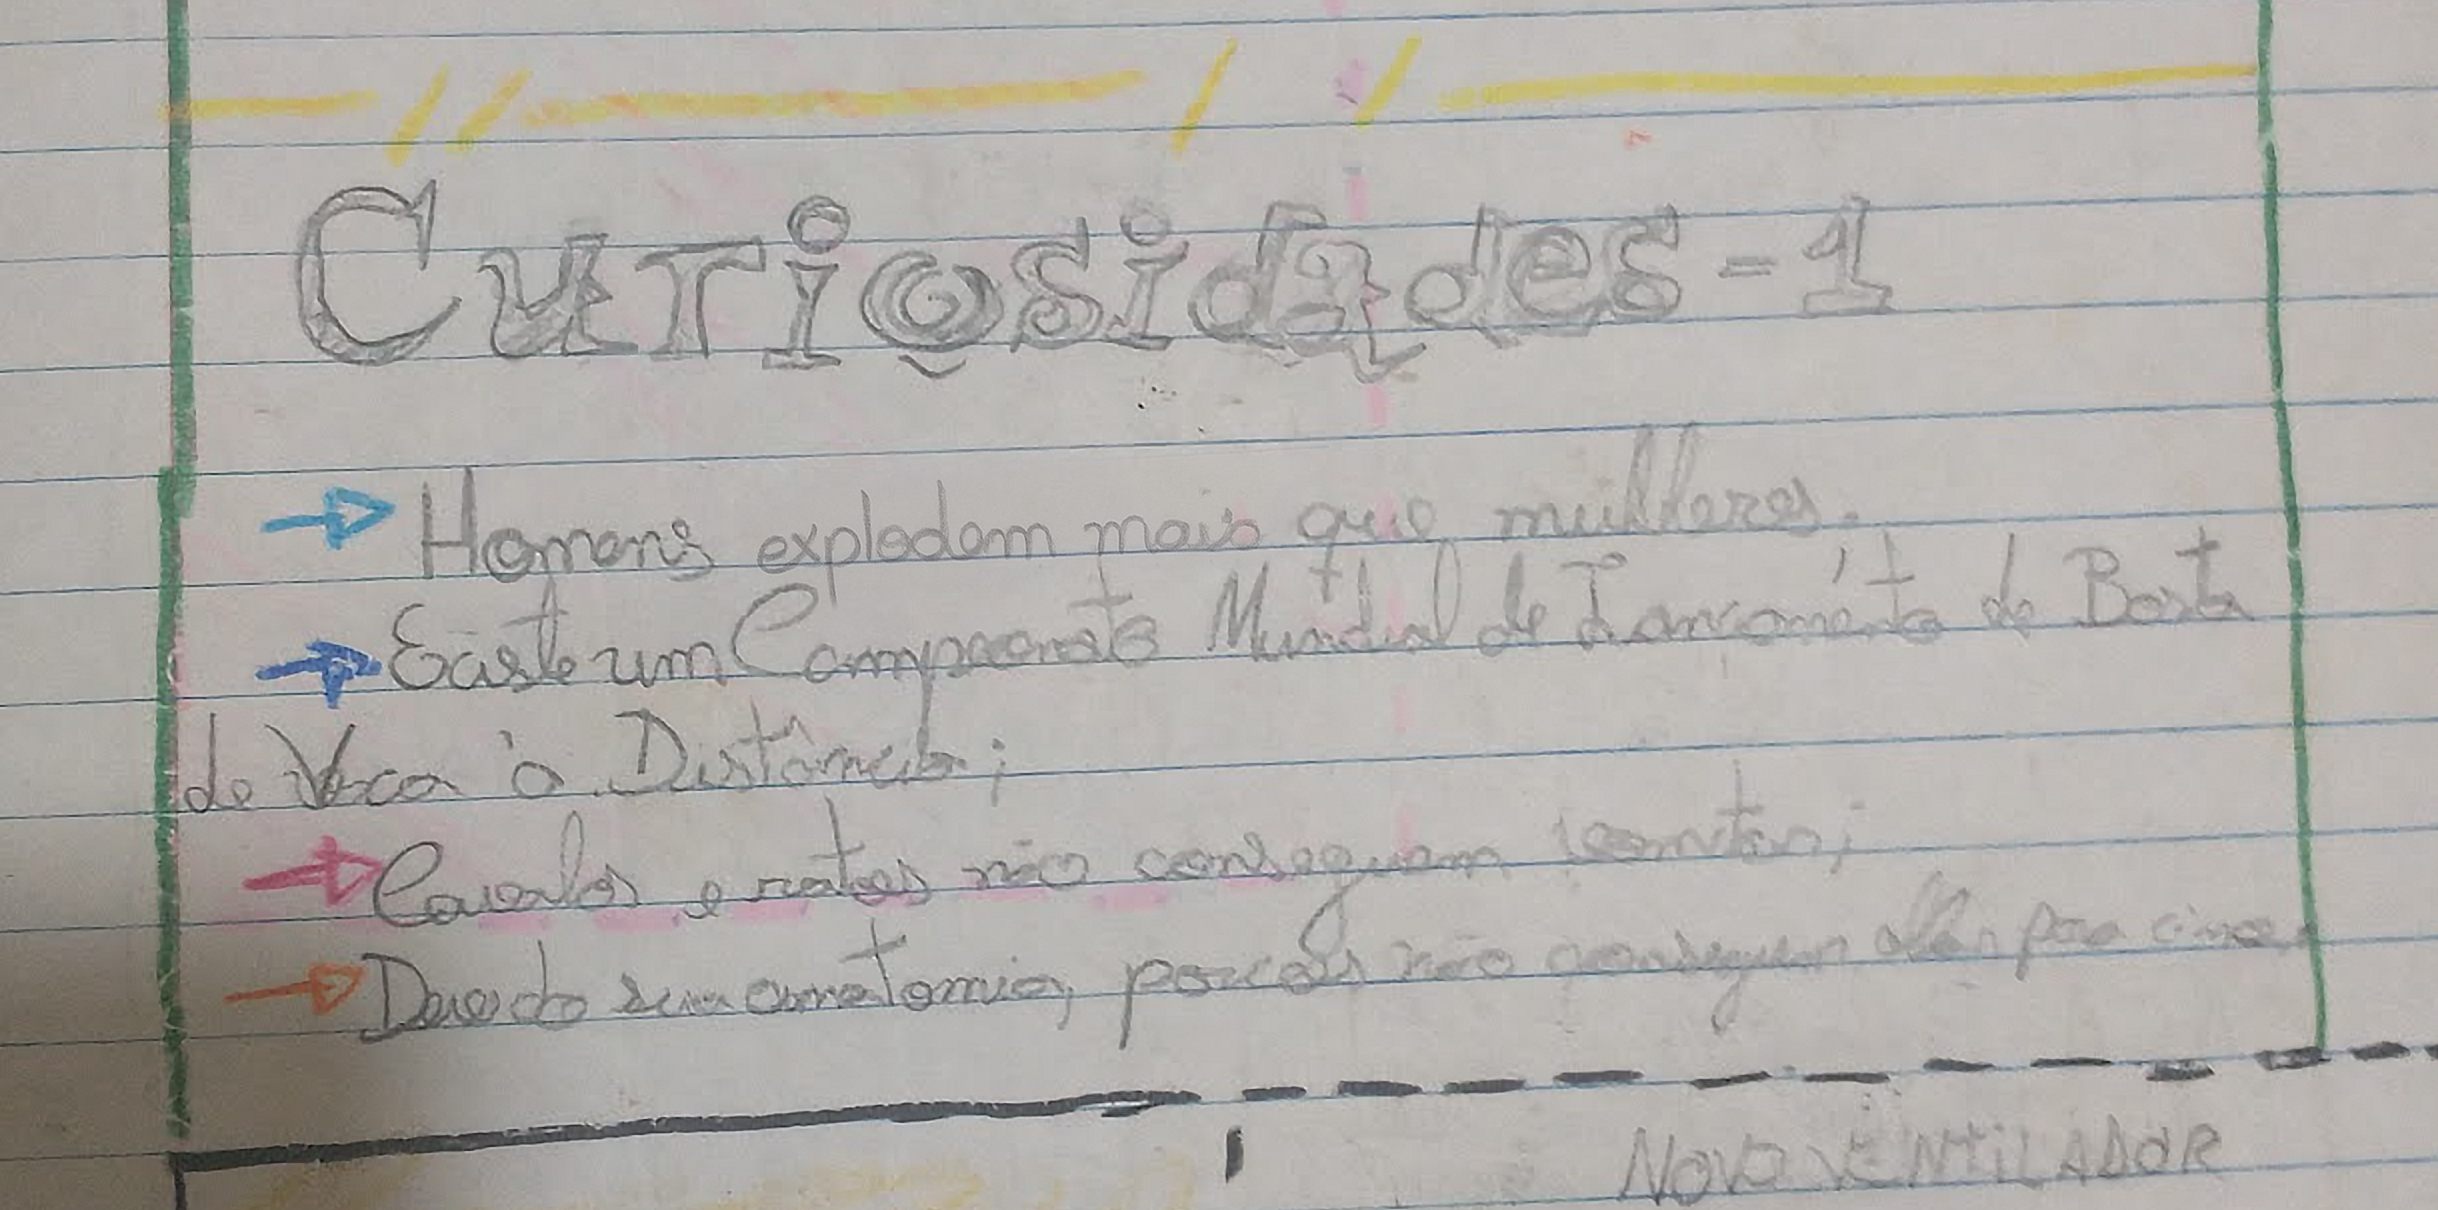 Curiosidades-1
Homens explodem mais que mulheres.
Existe um Campeonato Mundial de Lançamento de Bosta
de Vaca à Distância;
Cavalos e ratos não conseguem vomitar;
Devido sua anatomia, porcos não conseguem olhar para cima.
NOVO VENTILADOR